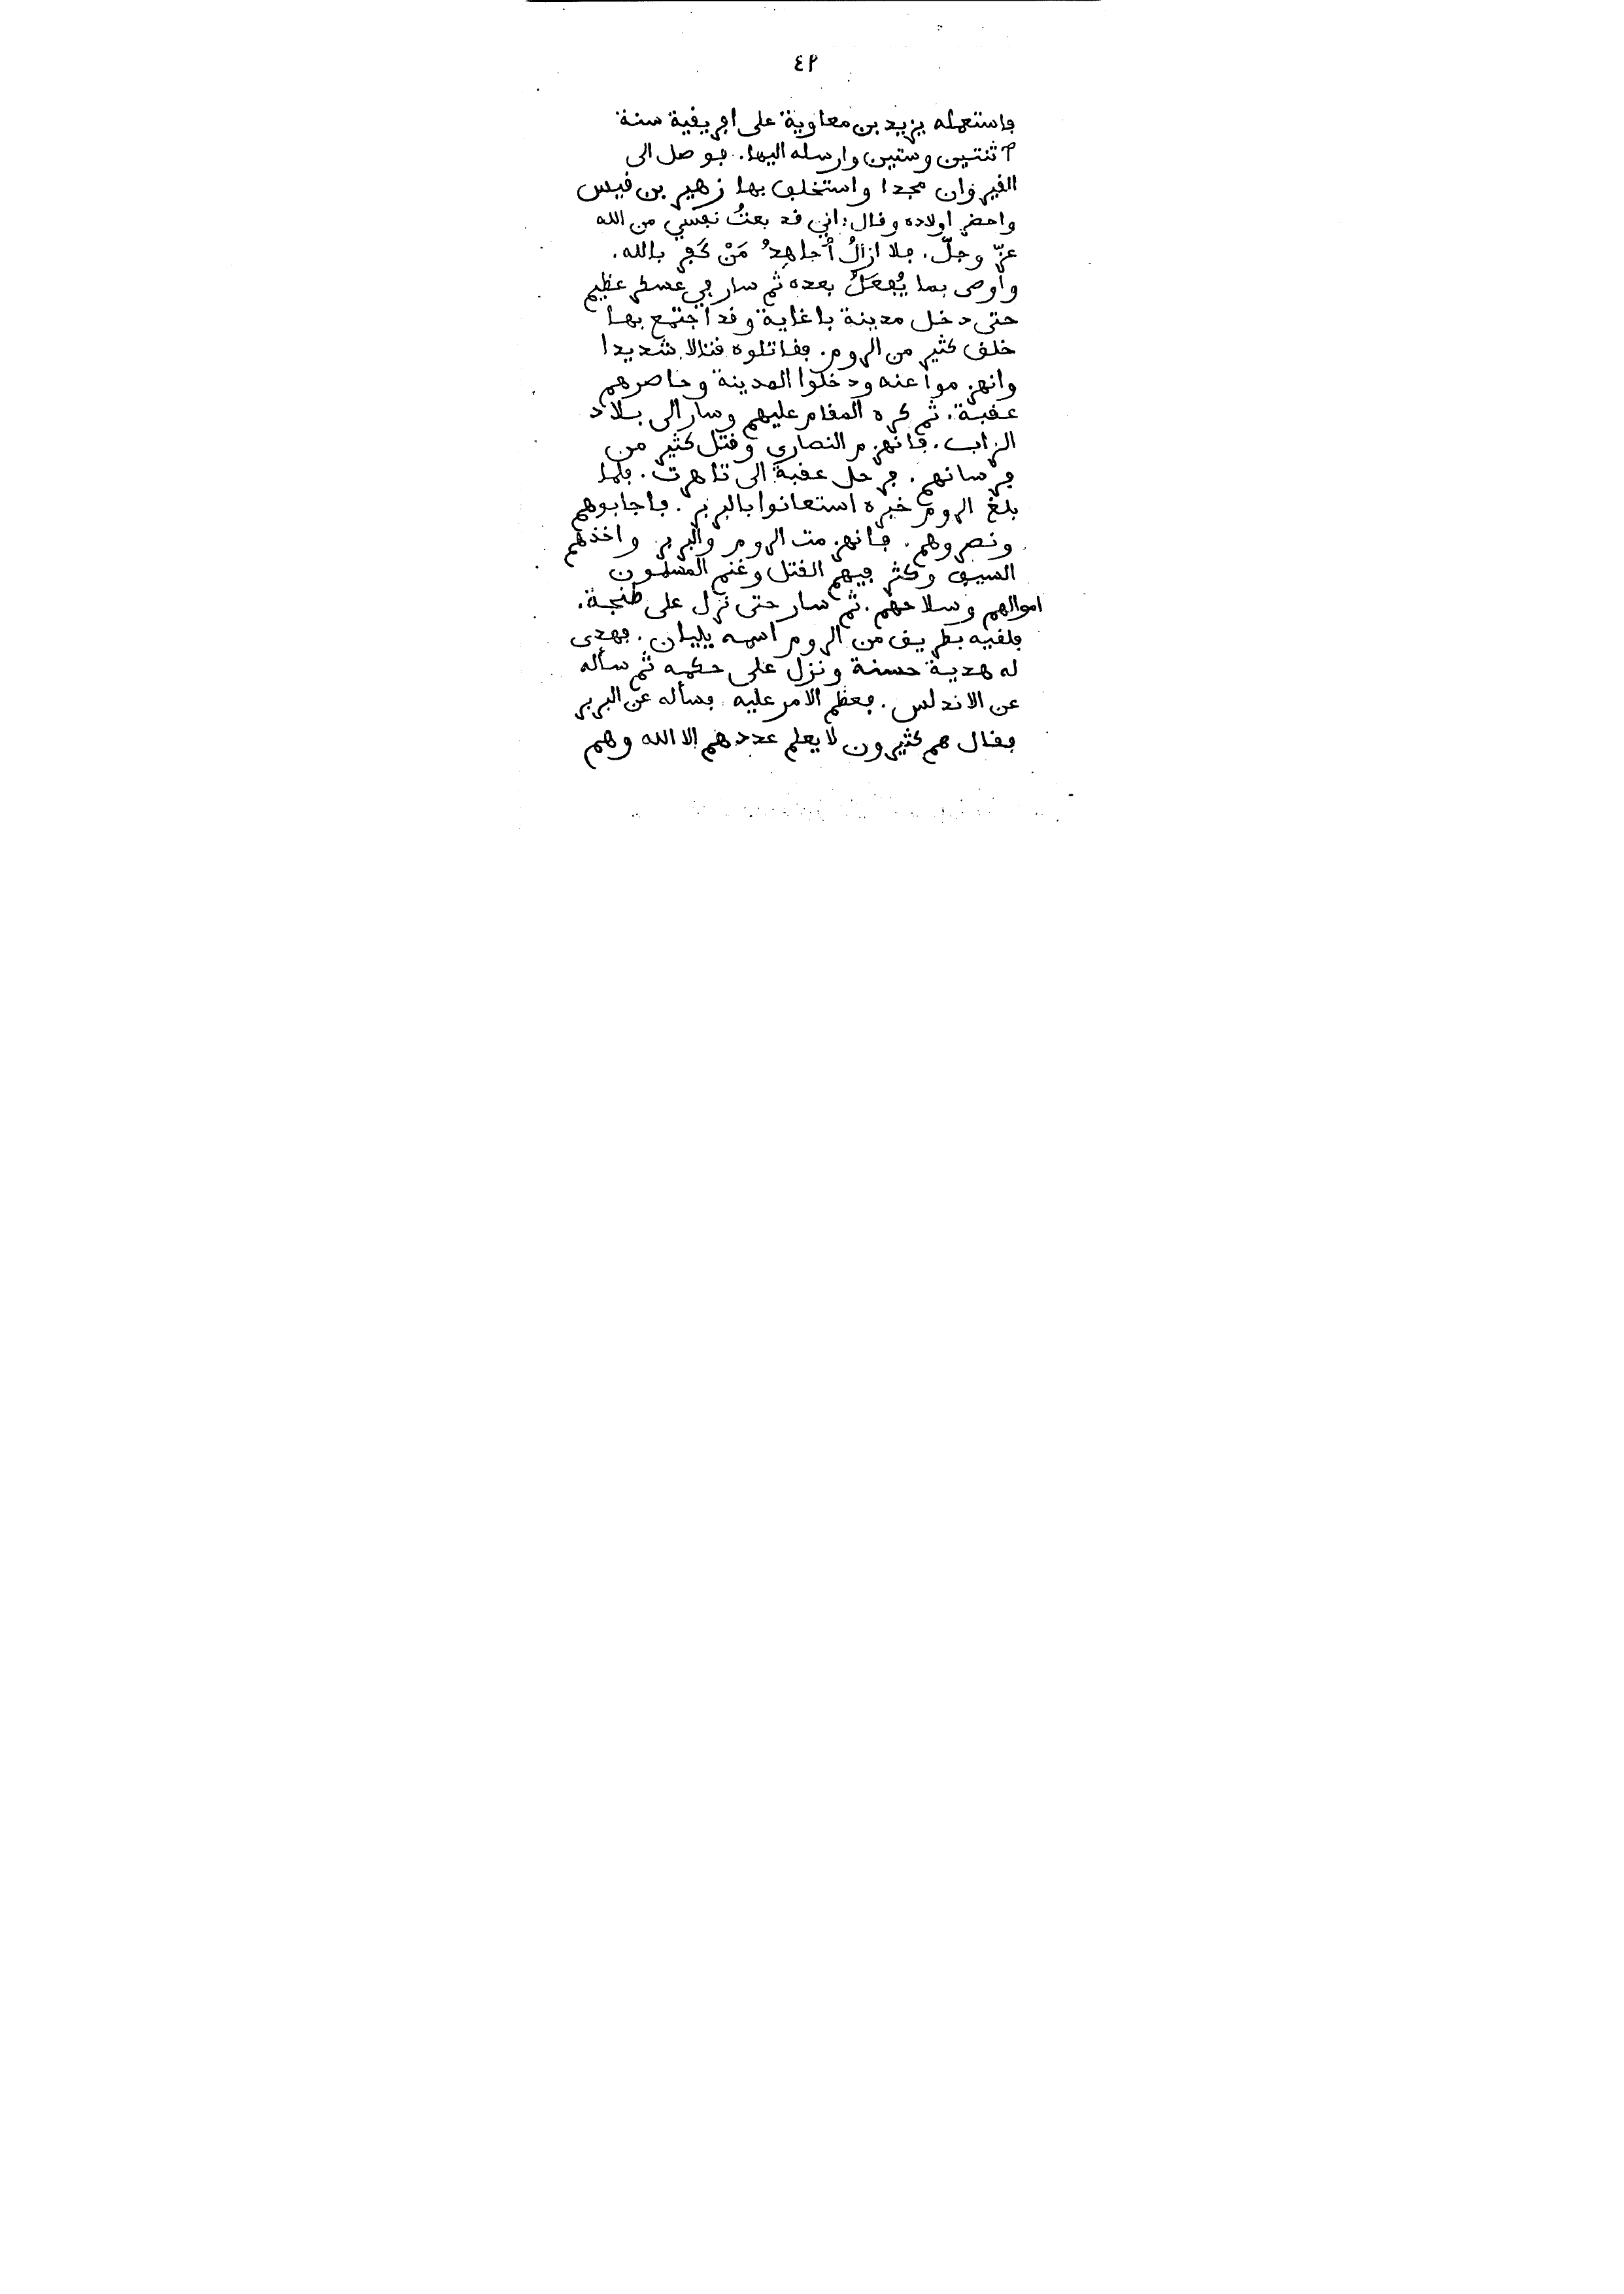 ٤٢
فاستعمله يزيد بن معاوية على افريقية سنة
اثنتين وستين وارسله اليها. فوصل الى
القيروان مجدا واستخلف بها زهير بن قيس
واحضر اولاده وقال: اني قد بعتُ نفسي من الله
عزّ وجلّ. فلا ازالُ أُجاهِدُ مَنْ كَفر بالله.
وأوصى بما يُفعَلُ بعده ثم سار في عسكر عظيم
حتى دخل مدينة باغاية وقد اجتمع بها
خلق كثير من الروم. فقاتلوه قتالا شديدا
وانهزموا عنه ودخلوا المدينة وحاصرهم
عقبة. ثم كره المقام عليهم وسار الى بلاد
الزاب. فانهزم النصارى وقتل كثير من
فرسانهم. فرحل عقبة الى تاهرت. فلما
بلغ الروم خبره استعانوا بالبربر. فاجابوهم
ونصروهم. فانهزمت الروم والبربر واخذهم
السيف وكثر فيهم القتل وغنم المسلمون
اموالهم وسلاحهم. ثم سار حتى نزل على طنجة.
فلقيه بطريق من الروم اسمه يليان. فهدى
له هدية حسنة ونزل على حكمه ثم سأله
عن الاندلس. فعظم الامر عليه. فسأله عن البربر
فقال هم كثيرون لا يعلم عددهم إلا الله وهم